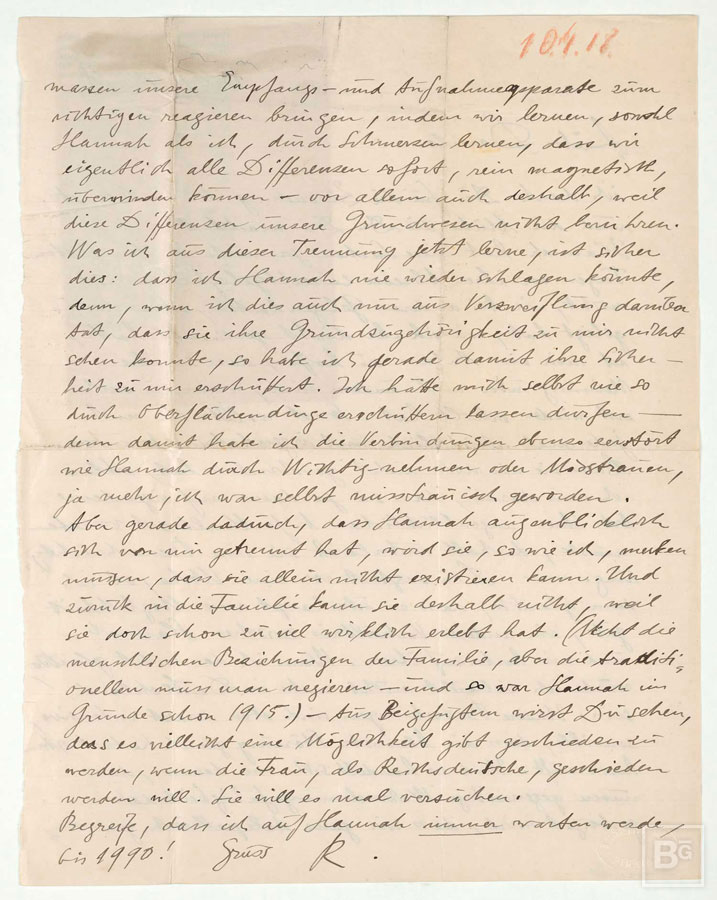 10.4.18.
massen unsere Empfangs- und Aufnahmeapparate zum
richtigen reagieren bringen, indem wir lernen, sowohl
Hannah als ich, durch Schmerzen lernen, dass wir
eigentlich alle Differenzen sofort, rein magnetisch,
überwinden können – vor allem auch deshalb, weil
diese Differenzen unsere Grundwesen nicht berühren.
Was ich aus dieser Trennung jetzt lerne, ist sicher
dies: dass ich Hannah nie wieder schlagen könnte,
denn, wenn ich dies auch nur aus Verzweiflung darüber
tat, dass sie ihre Grundzugehörigkeit zu mir nicht
sehen konnte, so habe ich gerade damit ihre Sicher-
heit zu mir erschüttert. Ich hätte mich selbst nie so
durch Oberflächendinge erschüttern lassen dürfen —
denn damit habe ich die Verbindungen ebenso zerstört
wie Hannah durch Wichtig-nehmen oder Misstrauen,
ja mehr, ich war selbst misstrauisch geworden.
Aber gerade dadurch, dass Hannah augenblicklich
sich von mir getrennt hat, wird sie, so wie ich, merken
müssen, dass sie allein nicht existieren kann. Und
zurück in die Familie kann sie deshalb nicht, weil
sie doch schon zu viel wirklich erlebt hat. (Nicht die
menschlichen Beziehungen der Familie, aber die traditi-
onellen muss man negieren – und so war Hannah im
Grunde schon 1915.) – Aus Beigefügtem wirst Du sehen,
dass es vielleicht eine Möglichkeit gibt geschieden zu
werden, wenn die Frau, als Reichsdeutsche, geschieden
werden will. Sie will es mal versuchen.
Begreife, dass ich auf Hannah immer warten werde,
bis 1990! Gruss R.
BG